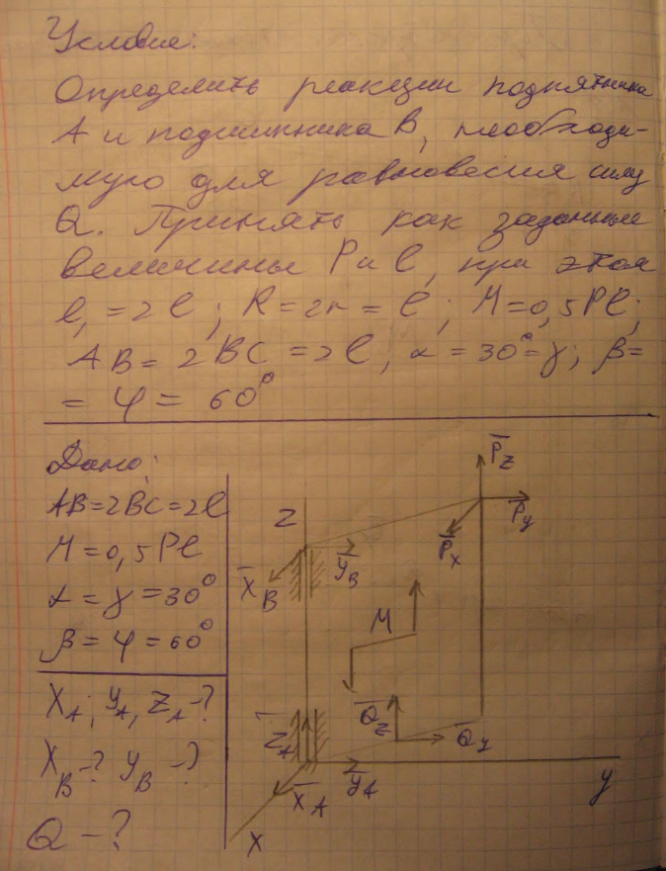 Условия:
Определить реакции подпятника
А и подшипника В, необходи-
мую для равновесия силу
Q. Принять как заданные
величины P и l, при этом
l₁ = 2l; R = 2r = l; M = 0,5Pl;
AB = 2BC = 2l, α = 30° = γ; β =
= φ = 60°
Дано:
AB = 2BC = 2l
M = 0,5Pl
α = γ = 30°
β = φ = 60°
X_A; Y_A, Z_A - ?
X_B - ? Y_B - ?
Q - ?
P_Z
Z
P_y
P_x
X_B
y_B
M
Q_z
Q_y
Z_A
X_A
y_A
y
X